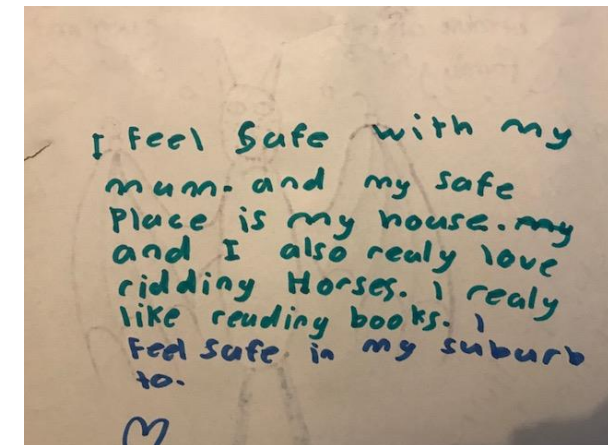 I Feel Safe with my
mum. and my safe
Place is my house. my
and I also realy love
ridding Horses. I realy
like reading books. I
Feel safe in my suburb
to.